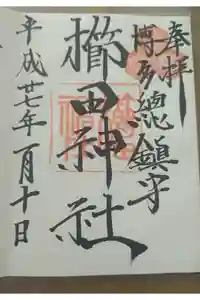 奉拝
博多総鎮守
櫛田神社
平成廿七年一月十日